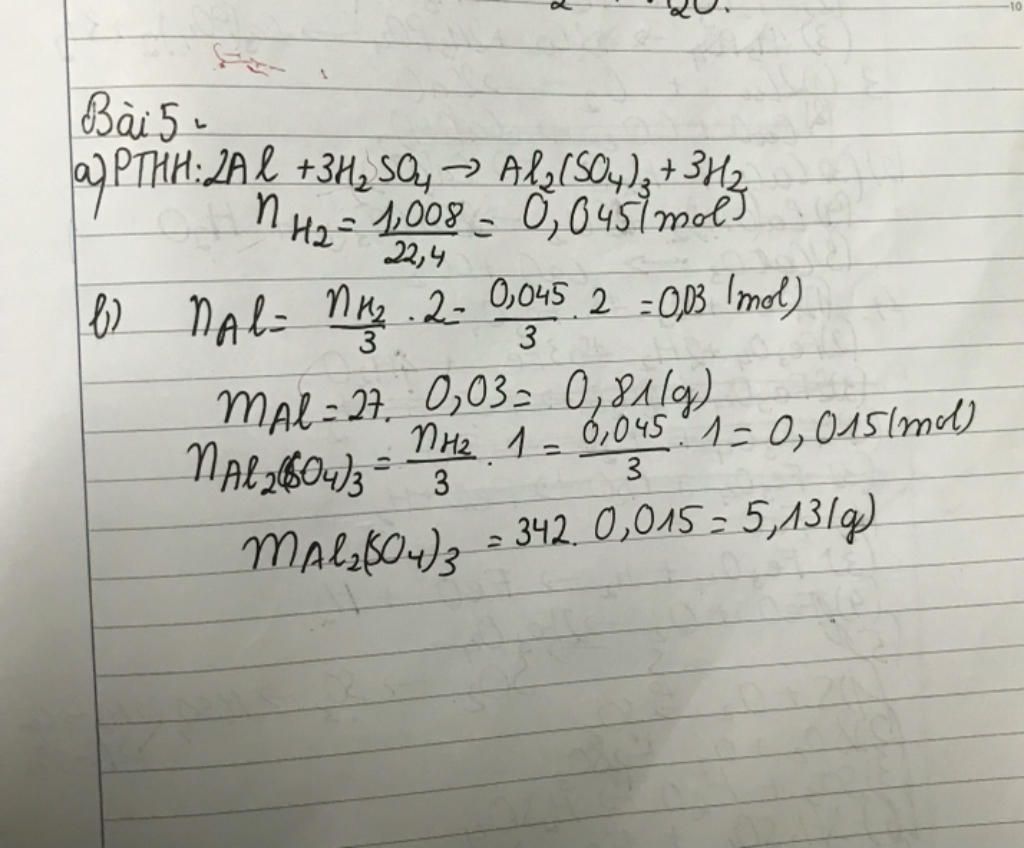 Bài 5.
a) PTHH: 2Al + 3H2SO4 → Al2(SO4)3 + 3H2
nH2 = 1,008/22,4 = 0,045 (mol)
b) nAl = nH2/3 . 2 = 0,045/3 . 2 = 0,03 (mol)
mAl = 27. 0,03 = 0,81 (g)
nAl2(SO4)3 = nH2/3 . 1 = 0,045/3 . 1 = 0,015 (mol)
mAl2(SO4)3 = 342. 0,015 = 5,13 (g)